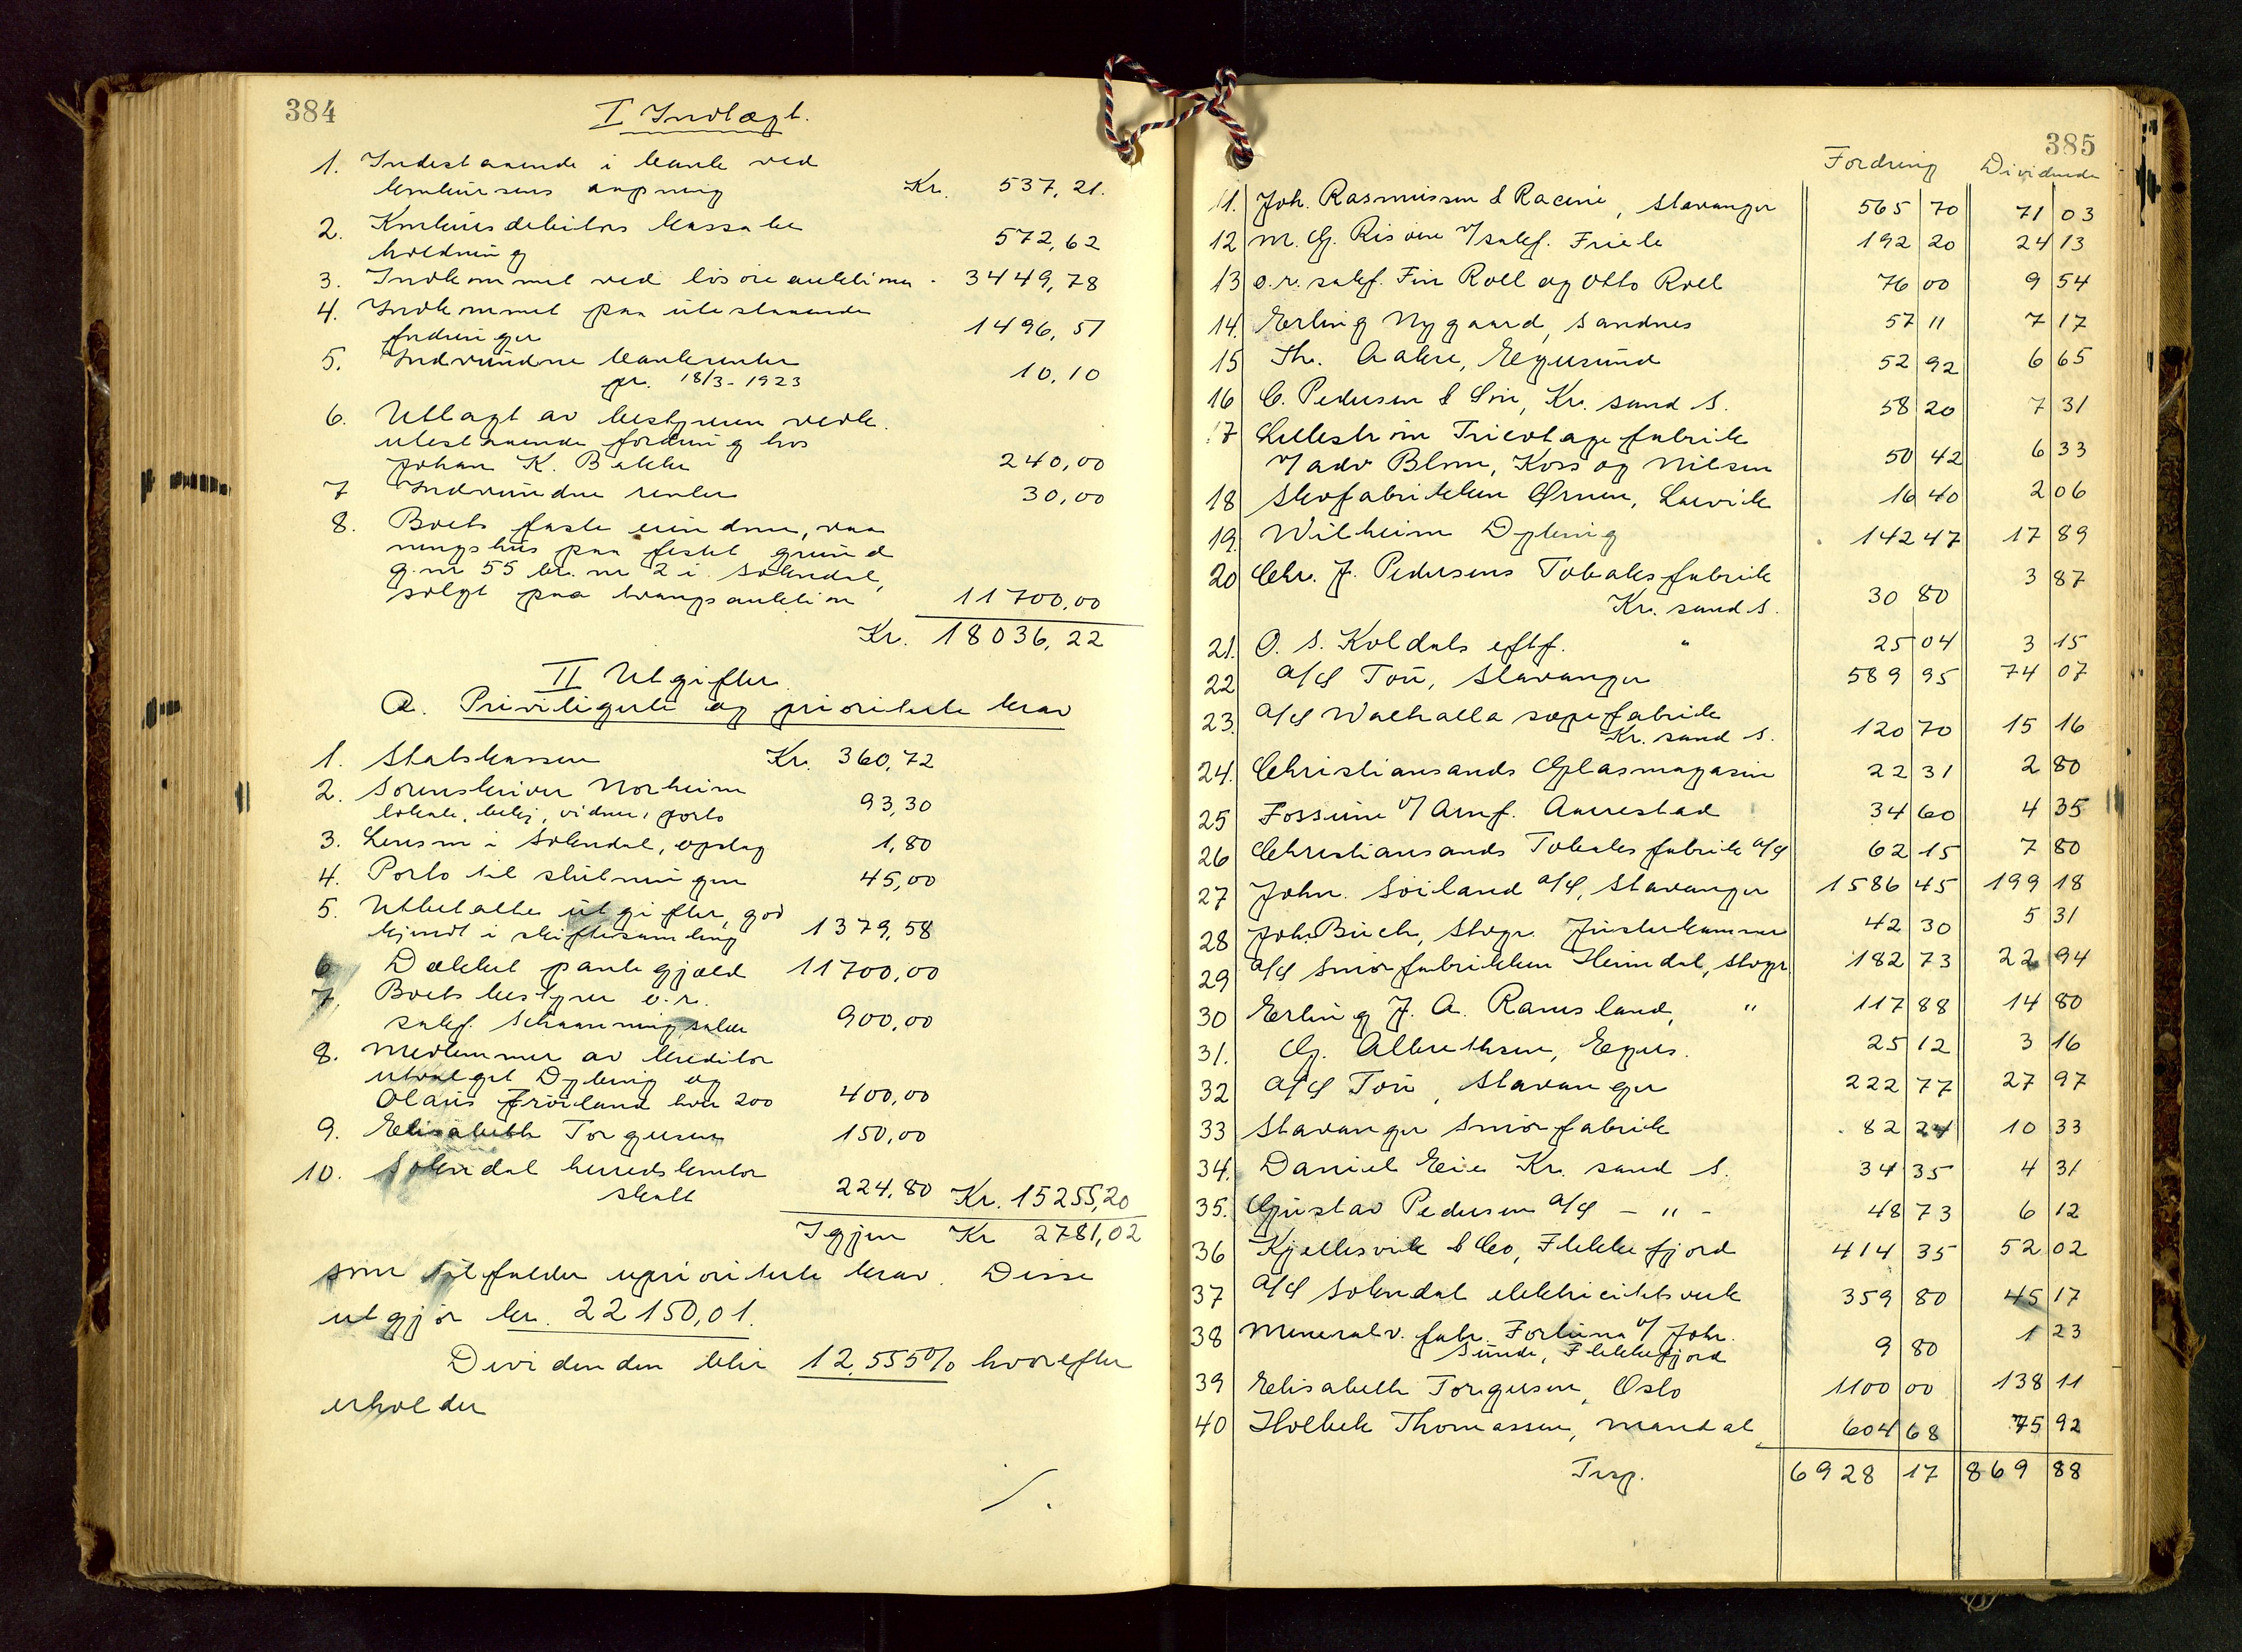 384
I Indtægt.
1. Indestaaende i bank ved
konkursens aapning Kr. 537,21.
2. Konkursdebitors kassabe
holdning 572,62
3. Indkommet ved løsøreauktionen - 3449,78
4. Indkommet paa utestaaende
fordringer 1496,51
5. Indvundne bankrenter
pr. 18/3-1923 10,10
6. Utlagt av bestyreren vedk.
utestaaende fordring hos
Johan K. Bakke 240,00
7 Indvundne renter 30,00
8. Boets faste eiendom, vaa
ningshus paa festet grund
g.nr 55 br.nr 2 i Sokndal,
solgt paa tvangsauktion 11700,00
Kr. 18036,22
II Utgifter
A. Priviligerte og prioriterte krav
1. Statskassen Kr. 360,72
2. Sorenskriver Norheim
lokale, bekj, vidner, porto 93,30
3. Lensm i Sokndal, opslag 1,80
4. Porto til slutningen 45,00
5. Utbetalte utgifter, god
kjendt i skiftesamling 1379,58
6 Dækket pantegjæld 11700,00
7. Boets bestyrer o.r.
sakf. Schaanning, salær 900,00
8. Medlemmer av kreditor
utvalget Dybing og
Olaus Frøiland hver 200 400,00
9. Elisabeth Torgersen 150,00
10. Sokndal herredskontor
skatt 224,80 Kr. 15255,20
Igjen Kr 2781,02
som tilfalder uprioriterte krav. Disse
utgjør kr. 22150,01.
Dividenden blir 12,555% hvorefter
erholder
/.
385
Fordring Dividende
11. Joh. Rasmussen & Racine, Stavanger 565 70 71 03
12 M. G. Risøen v/sakf. Friele 192 20 24 13
13 o.r.sakf. Finn Roll og Otto Roll 76 00 9 54
14. Erling Nygaard, Sandnes 57 11 7 17
15 Th. Aakre, Egersund 52 92 6 65
16 C. Pedersen & Søn, Kr.sand S. 58 20 7 31
17 Lillestrøm Tricotagefabrik
v/adv Blom, Koss og Nilsen 50 42 6 33
18 Skofabrikken Ørnen, Larvik 16 40 2 06
19. Wilhelm Dybing 142 47 17 89
20 Chr. J. Pedersens Tobaksfabrik
Kr.sand S. 30 80 3 87
21. O. S. Koldals eftf. " 25 04 3 15
22 A/S Tou, Stavanger 589 95 74 07
23. A/S Walhalla sæpefabrik
Kr.sand S. 120 70 15 16
24. Christiansands Glasmagasin 22 31 2 80
25 Fossum v/ Arnf. Aarrestad 34 60 4 35
26 Christiansands Tobaksfabrik A/S 62 15 7 80
27 John. Søiland A/S, Stavanger 1586 45 199 18
28 Joh. Buch, Stvgr. Justerkammer 42 30 5 31
29 A/S Smørfabrikken Heimdal, Stvgr. 182 73 22 94
30 Erling J. A. Ramsland, " 117 88 14 80
31. G. Albrethsen, Egers. 25 12 3 16
32 A/S Tou, Stavanger 222 77 27 97
33 Stavanger Smørfabrik 82 24 10 33
34. Daniel Eie Kr.sand S. 34 35 4 31
35. Gustav Pedersen A/S - " - 48 73 6 12
36 Kjellesvik & Co, Flekkefjord 414 35 52 02
37 A/S Sokndal elektricitetsverk 359 80 45 17
38 Mineralv. fabr. Fortuna v/ Johr.
Sunde, Flekkefjord 9 80 1 23
39 Elisabeth Torgersen, Oslo 1100 00 138 11
40 Holbek Thomassen, Mandal 604 68 75 92
Trsp. 6928 17 869 88